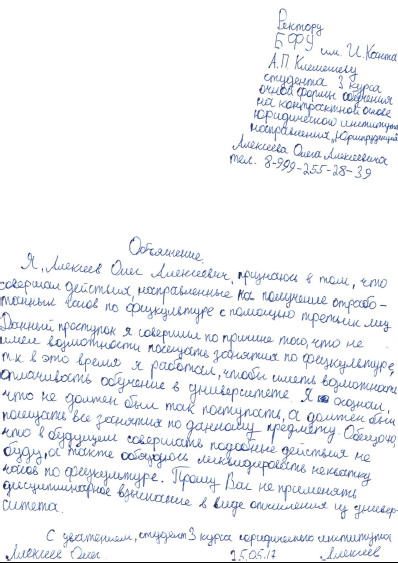 Ректору
БФУ им. И. Канта
А.П Клемешеву
студента 3 курса
очной формы обучения
на контрактной основе
юридического института
направления „Юриспруденция
Алексеева Олега Алексеевича
тел. 8-999-255-28-39
Объяснение.
Я, Алексеев Олег Алексеевич, признаюсь в том, что
совершал действия, направленные на получение отрабо-
танных часов по физкультуре с помощью третьих лиц
Данный проступок я совершил по причине того, что не
имел возможности посещать занятия по физкультуре,
т.к в это время я работал, чтобы иметь возможность
оплачивать обучение в университете. Я осознал,
что не должен был так поступать, а должен был
посещать все занятия по данному предмету. Обещаю,
что в будущем совершать подобные действия не
буду, а также обязуюсь ликвидировать нехватку
часов по физкультуре. Прошу Вас не применять
дисциплинарное взыскание в виде отчисления из универ-
ситета.
С уважением, студент 3 курса юридического института
Алексеев Олег 25.05.17 Алексеев